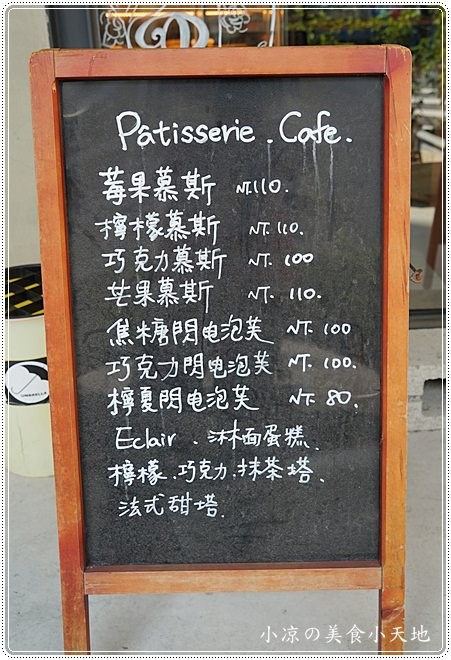 Pâtisserie . Cafe.
莓果慕斯 NT.110.
檸檬慕斯 NT.110.
巧克力慕斯 NT.100
芒果慕斯 NT.110.
焦糖閃电泡芙 NT.100
巧克力閃电泡芙 NT.100.
檸夏閃电泡芙 NT.80.
Eclair . 淋面蛋糕.
檸檬.巧克力.抹茶塔.
法式甜塔.
UMBRELLA
小凉の美食小天地